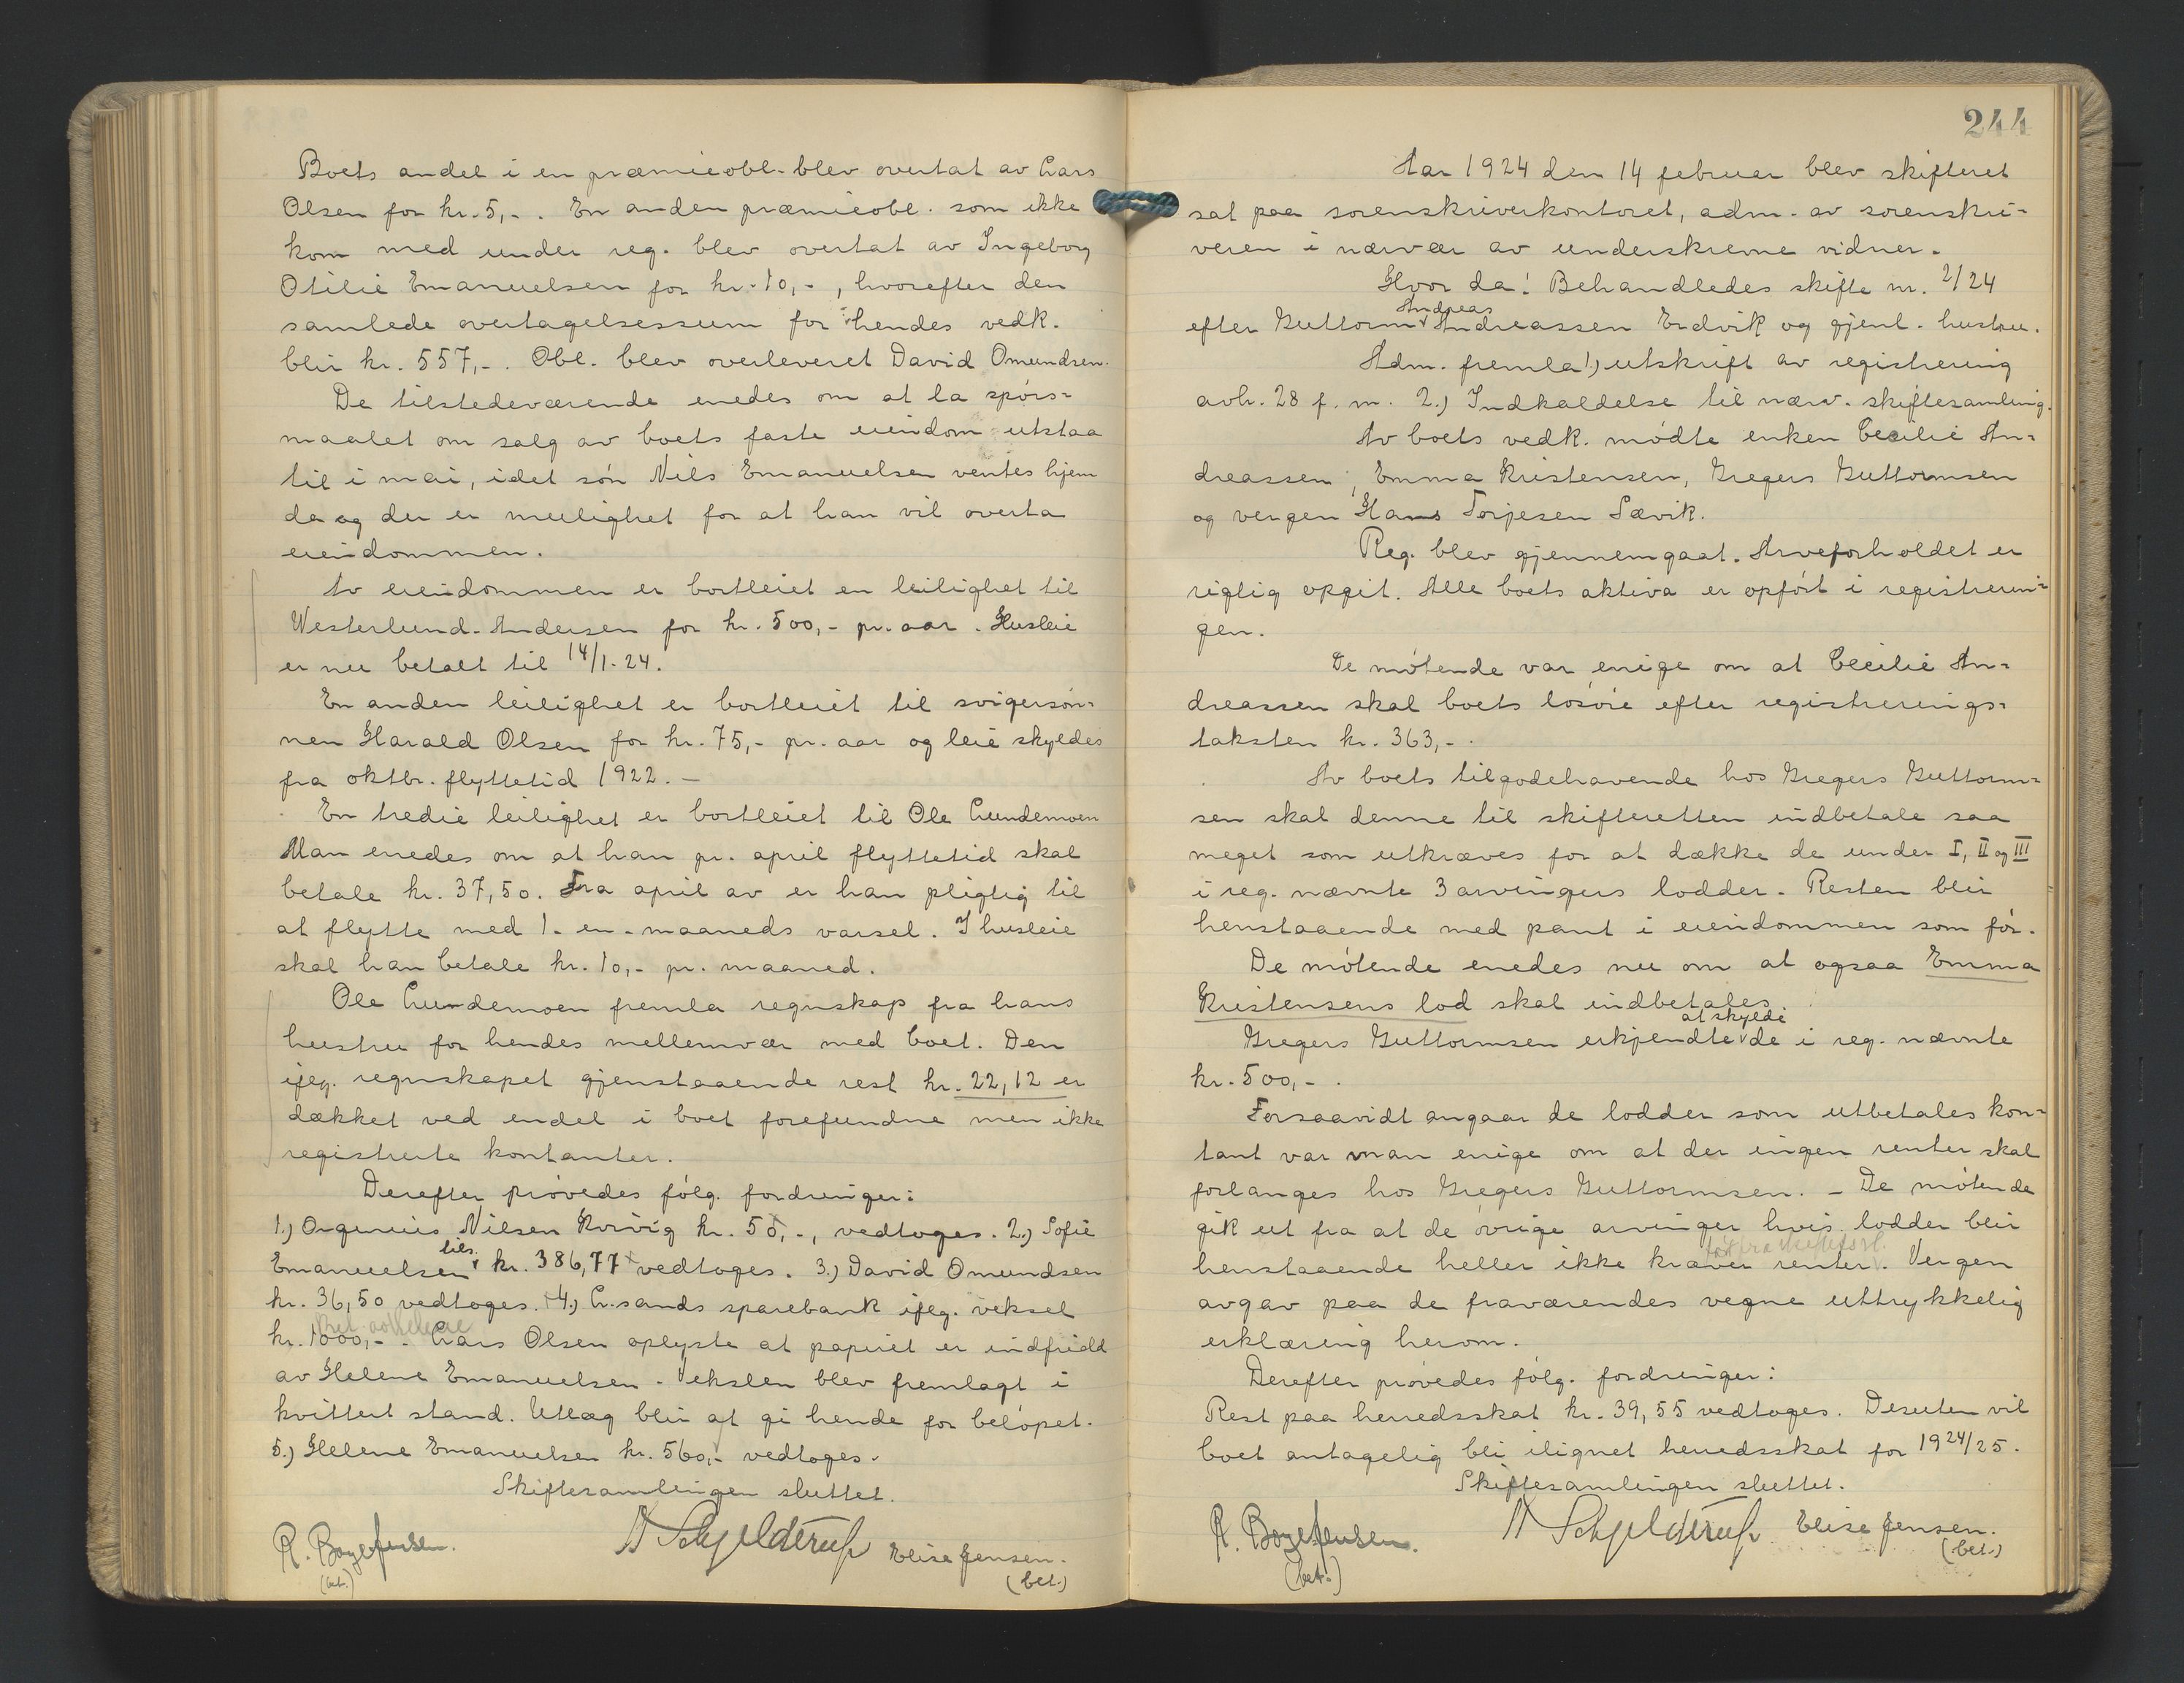 Boets andel i en præmieobl. blev overtat av Lars
Olsen for kr. 5,-. En anden præmieobl. som ikke
kom med under reg. blev overtat av Ingeborg
Otilie Emanuelsen for kr. 10,-, hvorefter den
samlede overtagelsessum for hendes vedk.
blir kr. 557,-. Obl. blev overleveret David Omundsen.
De tilstedeværende enedes om at la spørs=
maalet om salg av boets faste eiendom utstaa
til i mai, idet søn Nils Emanuelsen ventes hjem
da og der er mulighet for at han vil overta
eiendommen.
Av eiendommen er bortleiet en leilighet til
Westerlund-Andersen for kr. 500,- pr. aar. Husleie
er nu betalt til 14/1-24.
En anden leilighet er bortleiet til svigersøn=
nen Harald Olsen for kr. 75,- pr. aar og leie skyldes
fra oktbr. flyttetid 1922. -
En tredie leilighet er bortleiet til Ole Lundemoen
Man enedes om at han pr. april flyttetid skal
betale kr. 37,50. Fra april av er han pligtig til
at flytte med 1- en - maaneds varsel. I husleie
skal han betale kr. 10,- pr. maaned.
Ole Lundemoen fremla regnskap fra hans
hustru for hendes mellemvær med boet. Den
ifølg. regnskapet gjenstaaende rest kr. 22,12 er
dækket ved endel i boet forefundne men ikke
registrerte kontanter.
Derefter prøvedes følg. fordringer:
1.) Orgenius Nilsen Korvig kr. 50,-, vedtoges. 2.) Sofie
Emanuelsen tils. kr. 386,77 vedtoges. 3.) David Omundsen
kr. 36,50 vedtoges. 4.) Kr.sands sparebank ifølg. veksel
kr. 1000,-. Lars Olsen oplyste at papiret er indfridd
av Helene Emanuelsen. Vekslen blev fremlagt i
kvittert stand. Utlæg blir at gi hende for beløpet.
5.) Helene Emanuelsen kr. 560,- vedtoges.
Skiftesamlingen sluttet.
R. Boye Jensen. Schjelderup Elise Jensen.
(bet.) (bet.)
244
Aar 1924 den 14 februar blev skifteret
sat paa sorenskriverkontoret, adm. av sorenskri=
veren i nærvær av underskrevne vidner.
Hvor da: Behandledes skifte nr. 2/24
Andreas
efter Guttorm Andreassen Erdvik og gjenl. hustru.
Adm. fremla 1.) utskrift av registrering
avh. 28 f. m. 2.) Indkaldelse til nærv. skiftesamling.
Av boets vedk. mødte enken Cecilie An=
dreassen, Emma Kristensen, Gregers Guttormsen
og vergen Hans Torjesen Sævik.
Reg. blev gjennemgaat. Arveforholdet er
rigtig opgit. Alle boets aktiva er opført i registrerin=
gen.
De møtende var enige om at Cecilie An=
dreassen skal boets løsøre efter registrerings=
taksten kr. 363,-.
Av boets tilgodehavende hos Gregers Guttorm=
sen skal denne til skifteretten indbetale saa
meget som utkræves for at dække de under I, II og III
i reg. nævnte 3 arvingers lodder. Resten blir
henstaaende med pant i eiendommen som før.
De møtende enedes nu om at ogsaa Emma
Kristensens lod skal indbetales.
at skylde
Gregers Guttormsen erkjendte de i reg. nævnte
kr. 500,-.
Forsaavidt angaar de lodder som utbetales kon=
tant var man enige om at der ingen renter skal
forlanges hos Gregers Guttormsen. - De møtende
gik ut fra at de øvrige arvinger hvis lodder blir
henstaaende heller ikke kræver renter. Vergen
avgav paa de fraværendes vegne uttrykkelig
erklæring herom.
Derefter prøvedes følg. fordringer:
Rest paa herredsskat kr. 39,55 vedtoges. Desuten vil
boet antagelig bli ilignet herredsskat for 1924/25.
Skiftesamlingen sluttet.
R. Boye Jensen. Schjelderup Elise Jensen.
(bet.) (bet.)